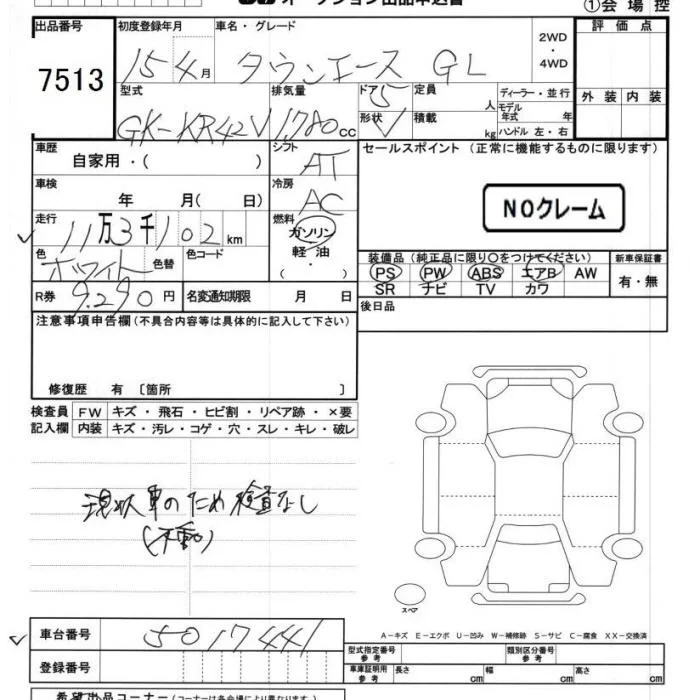 オークション出品申込書
①会場控
出品番号 7513
初度登録年月 15 4月
車名・グレード タウンエース GL
2WD・4WD
評価点
外装 内装
型式 GK-KR42V
排気量 1780cc
ドア 5
形状
定員 人
積載 kg
ディーラー・並行
モデル年式 年
ハンドル 左・右
車歴 自家用・( )
シフト AT
セールスポイント (正常に機能するものに限ります)
NOクレーム
車検 年 月( 日)
冷房 AC
走行 11万3千102km
燃料 ガソリン 軽油 ( ・ )
色 ホワイト 色替 色コード
装備品 (純正品に限り〇をつけてください)
新車保証書
PS PW ABS エアB AW
SR ナビ TV カワ
有・無
R券 9,290円
名変通知期限 月 日
後日品
注意事項申告欄 (不具合内容等は具体的に記入して下さい)
修復歴 有 〔箇所 〕
検査員 FW キズ・飛石・ヒビ割・リペア跡・×要
記入欄 内装 キズ・汚レ・コゲ・穴・スレ・キレ・破レ
現状車のため検査なし
(不動)
スペア
A-キズ E-エクボ U-凹み W-補修跡 S-サビ C-腐食 XX-交換済
車台番号 5017441
登録番号
型式指定番号 参考
類別区分番号 参考
車庫証明用 参考 長さ cm 幅 cm 高さ cm
希望出品コーナー (コーナーは各会場により異なります)